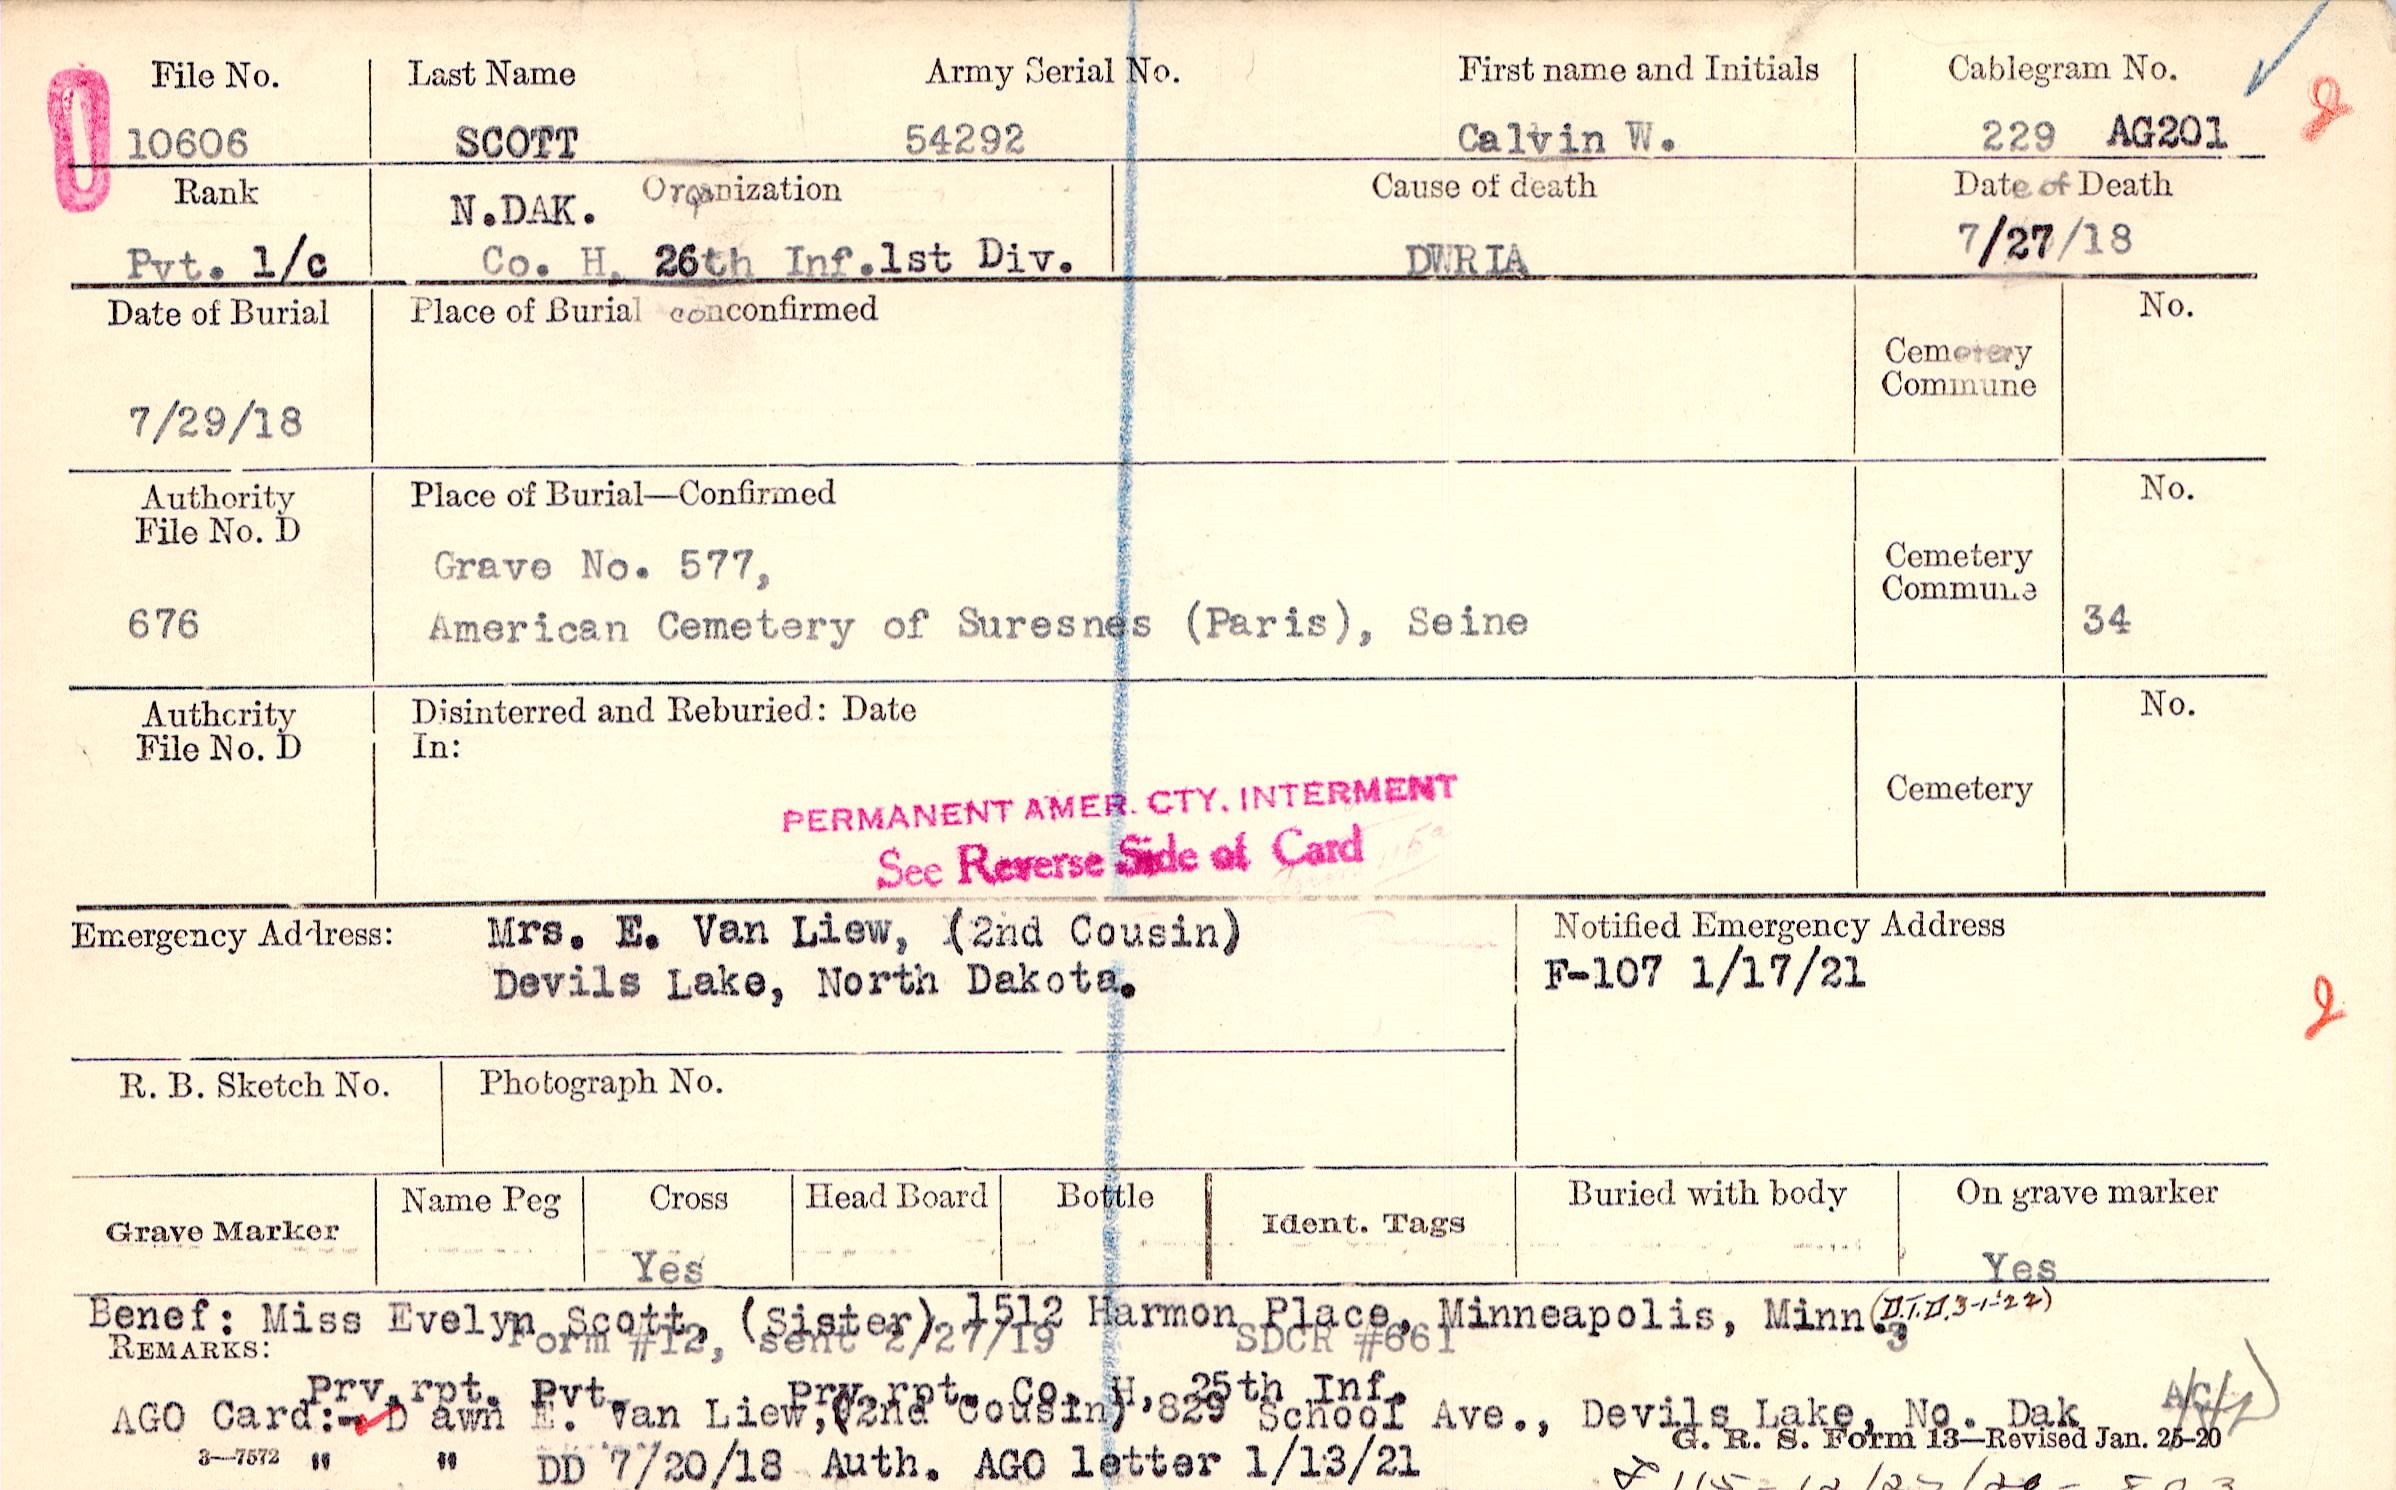 File No. Last Name Army Serial No. First name and Initials Cablegram No.
10606 SCOTT 54292 Calvin W. 229 AG201
Rank Organization Cause of death Date of Death
N.DAK.
Pvt. 1/c Co. H, 26th Inf.1st Div. DWRIA 7/27/18
Date of Burial Place of Burial conconfirmed No.
Cemetery
Commune
7/29/18
Authority Place of Burial—Confirmed No.
File No. D
Grave No. 577, Cemetery
Commune
676 American Cemetery of Suresnes (Paris), Seine 34
Authority Disinterred and Reburied: Date No.
File No. D In:
Cemetery
PERMANENT AMER. CTY. INTERMENT
See Reverse Side of Card
Emergency Address: Mrs. E. Van Liew, (2nd Cousin) Notified Emergency Address
Devils Lake, North Dakota. F-107 1/17/21
R. B. Sketch No. Photograph No.
Grave Marker Name Peg Cross Head Board Bottle Ident. Tags Buried with body On grave marker
Yes Yes
Benef: Miss Evelyn Scott, (Sister) 1512 Harmon Place, Minneapolis, Minn.
REMARKS: Form #12, sent 2/27/19 SDCR #661 3
Prv.rpt. Pvt. Prv.rpt. Co. H, 25th Inf.
AGO Card:- D awn E. Van Liew,(2nd Cousin) 829 School Ave., Devils Lake, No. Dak
G. R. S. Form 13—Revised Jan. 25-20
3—7572 " " DD 7/20/18 Auth. AGO letter 1/13/21